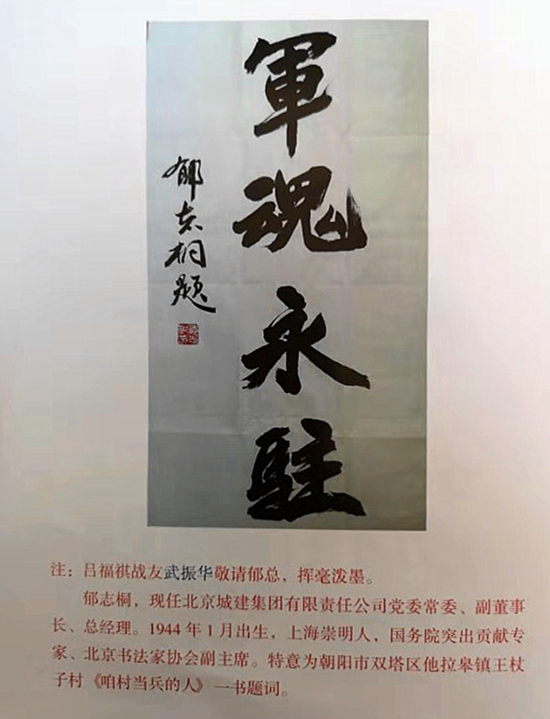 軍魂永駐
郁志桐题
注：吕福祺战友武振华敬请郁总，挥毫泼墨。
郁志桐，现任北京城建集团有限责任公司党委常委、副董事
长、总经理。1944年1月出生，上海崇明人，国务院突出贡献专
家、北京书法家协会副主席。特意为朝阳市双塔区他拉皋镇王杖
子村《咱村当兵的人》一书题词。